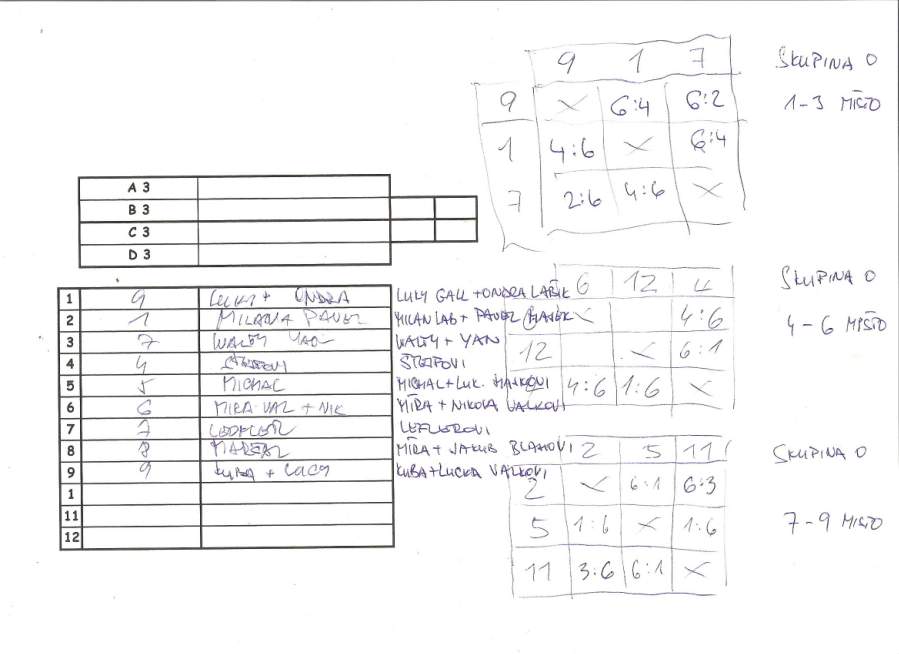 9 1 7 SKUPINA O
9 × 6:4 6:2 1-3 MÍSTO
1 4:6 × 6:4
7 2:6 4:6 ×
A 3
B 3
C 3
D 3
6 12 4 SKUPINA O
× 4:6 4-6 MÍSTO
12 × 6:1
4:6 1:6 ×
1 9 LUKY + ONDRA LUKY GALL + ONDRA LAŠÍK
2 1 MILAN A PAVEL MILAN LAB + PAVEL HÁJEK
3 7 WALTY YAN WALTY + YAN
4 4 ŠTEFOVI ŠTEFOVI
5 5 MICHAL MICHAL + LUK.
6 6 MIRA VAL + NIK MÍRA + NIKOLA VALKOVI
7 7 LEFLEROVI
8 8 MÍRA + JAKUB BLAHOVI
9 9 KUBA + LUCA KUBA + LUCKA VALKOVI
1
11
12
2 5 11 SKUPINA O
2 × 6:1 6:3
5 1:6 × 1:6 7-9 MÍSTO
11 3:6 6:1 ×